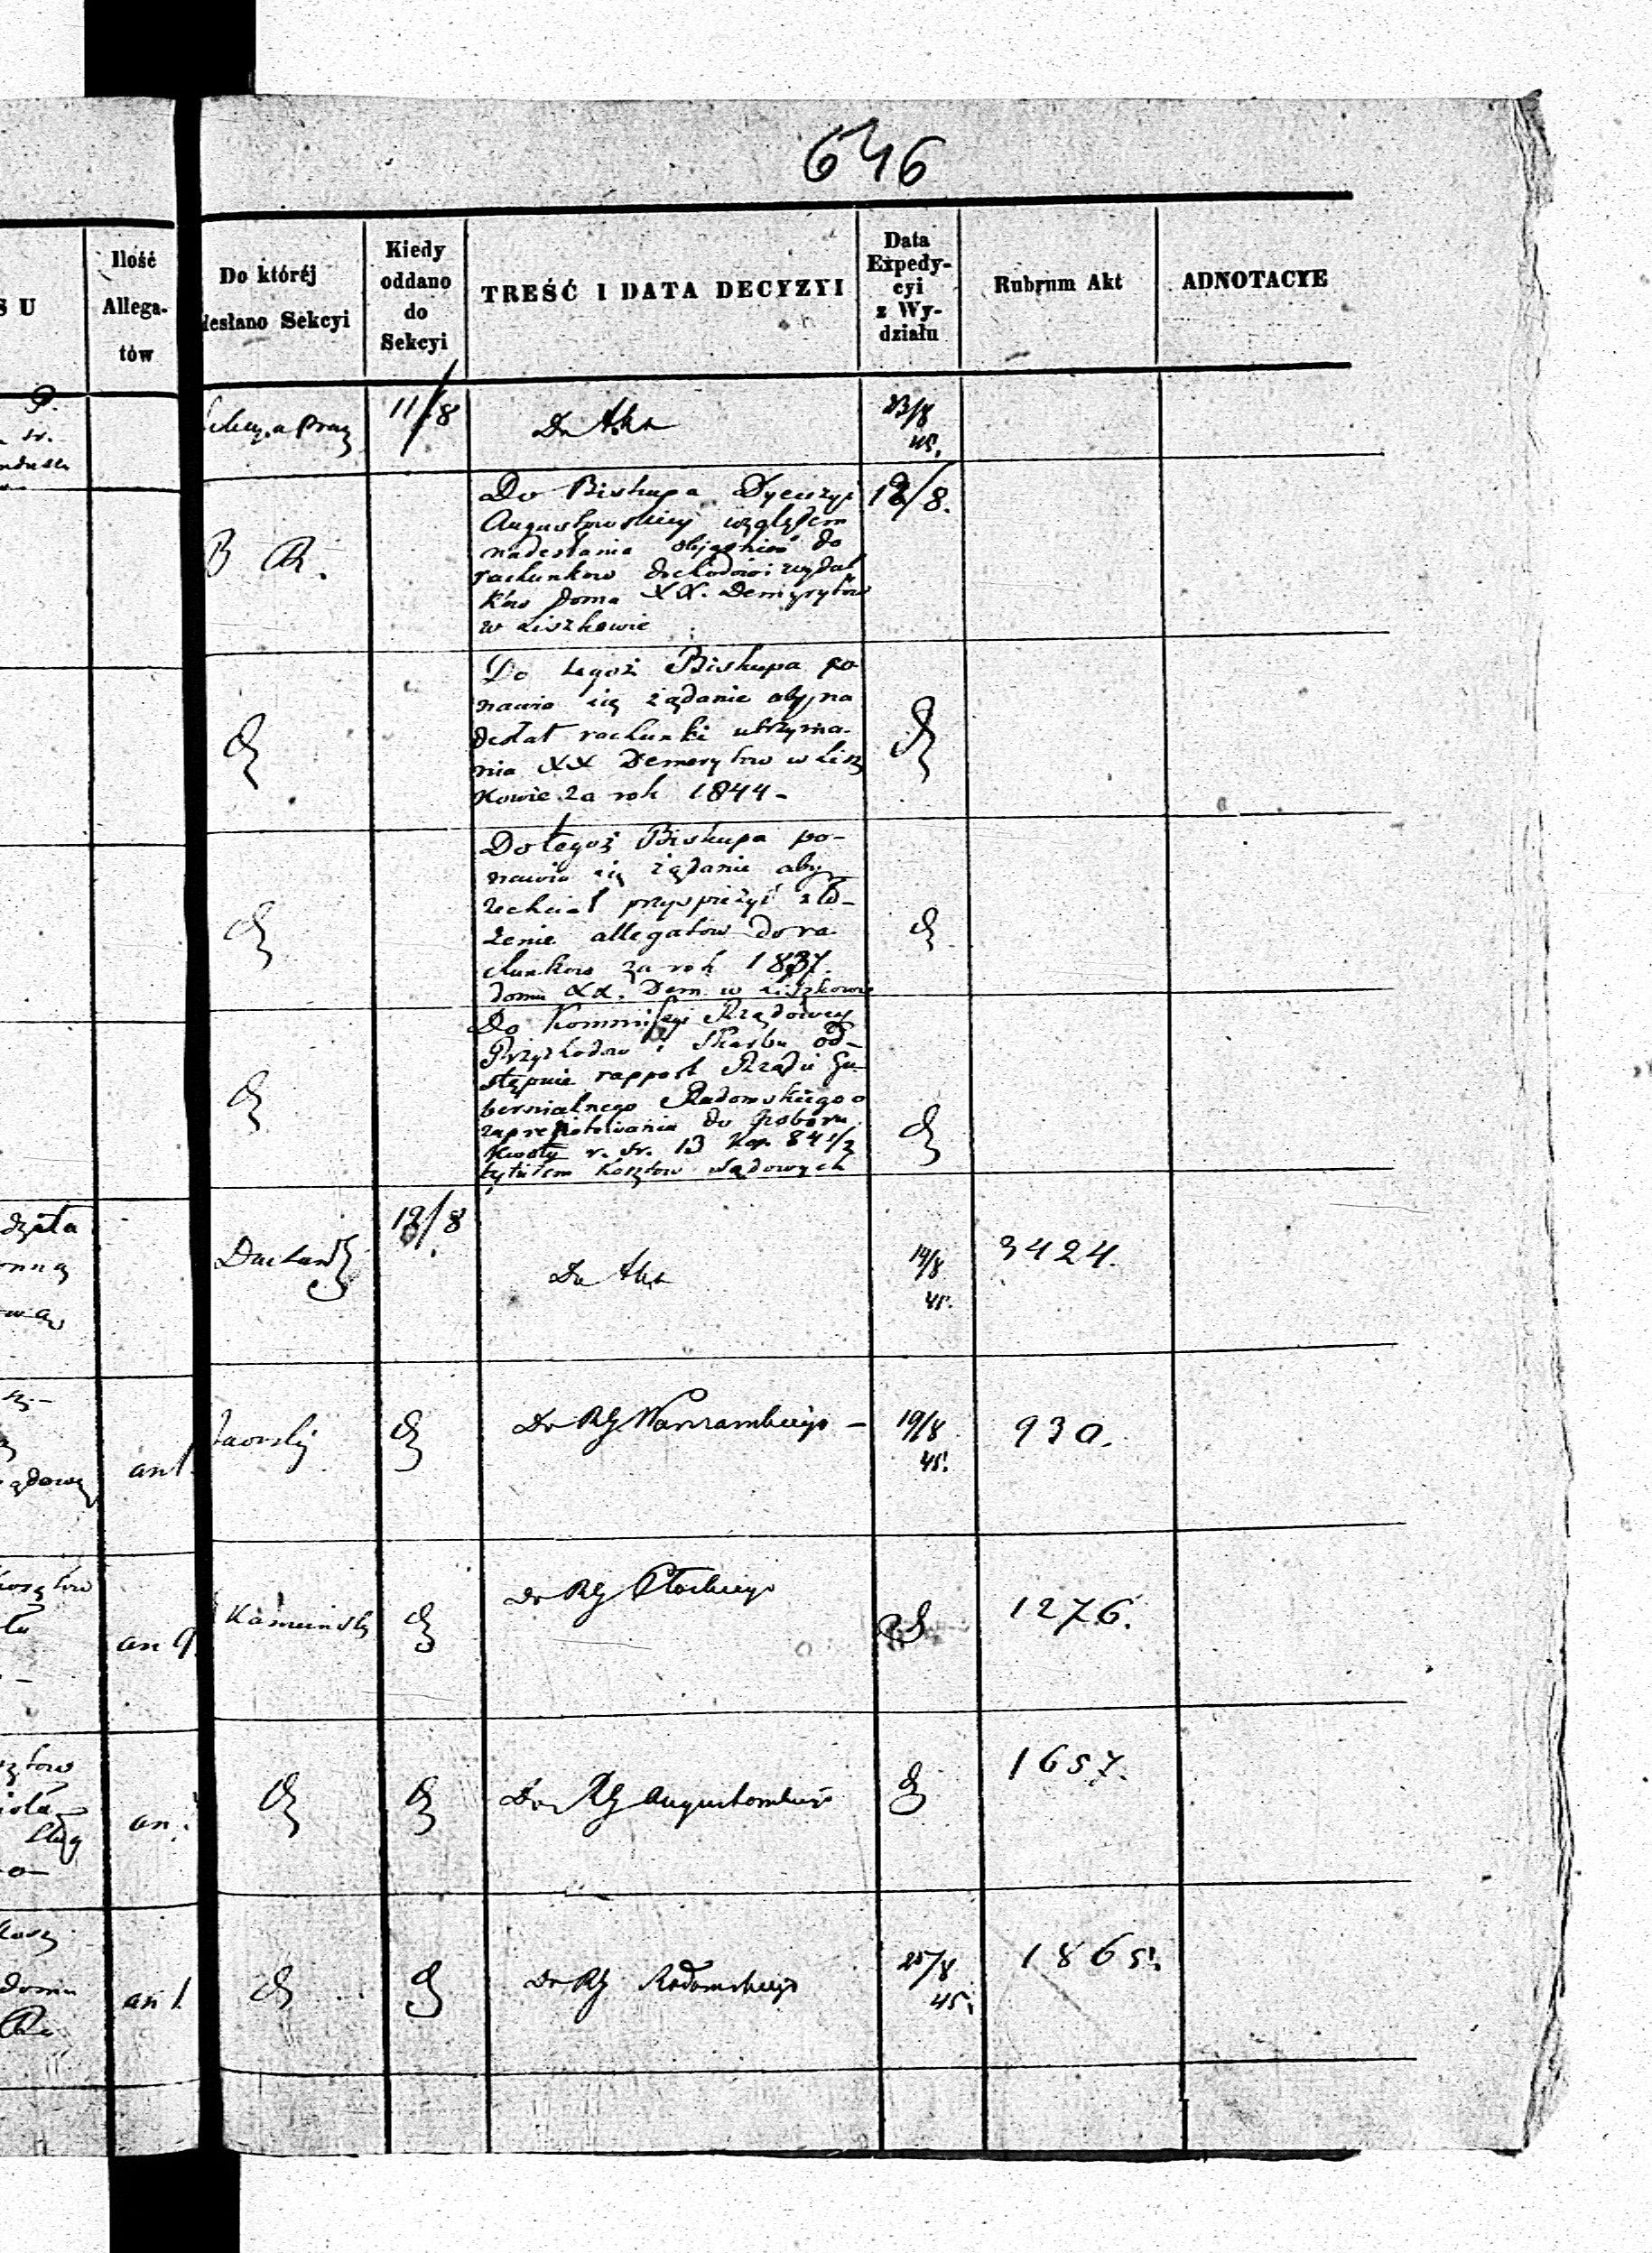 646
S U
Ilość
Allega-
tów
Do któréj
desłano Sekcyi
Kiedy
oddano
do
Sekcyi
TREŚĆ I DATA DECYZYI
Data
Expedy-
cyi
z Wy-
działu
Rubrum Akt
ADNOTACYE
11/8
Do Akt
23/8
45.
B R.
Do Biskupa Dyecezyi
Augustowskiej względem
nadesłania objaśnień do
rachunków dochodów i wydat
ków domu XX. Demerytów
w Liszkowie
12/8.
Do tegoż Biskupa po
nawia się żądanie aby na
desłał rachunki utrzyma-
nia XX Demerytów w Lisz
kowie za rok 1844 -
Do tegoż Biskupa po-
nawia się żądanie aby
zechciał przyspieżyć zło-
żenie allegatów do ra
chunków za rok 1837.
domu XX. Dem. w Liszkowie
Do Kommissyi Rządowej
Przychodów i Skarbu od-
stępuie rapport Rządu Gu-
bernialnego Radomskiego o
do poboru
kwoty r. sr. 13 kop. 84 1/2
tytułem kosztów sądowych
12/8
Do Akt
19/8
45.
3424.
an 1.
Do RG Warszawskiego -
19/8
45.
930.
an 9.
Kamiński
Do RG Płockiego
1276.
an
Do RG Augustowskiego
1657.
domu
an 1.
Do RG Radomskiego
25/8
45.
1865.